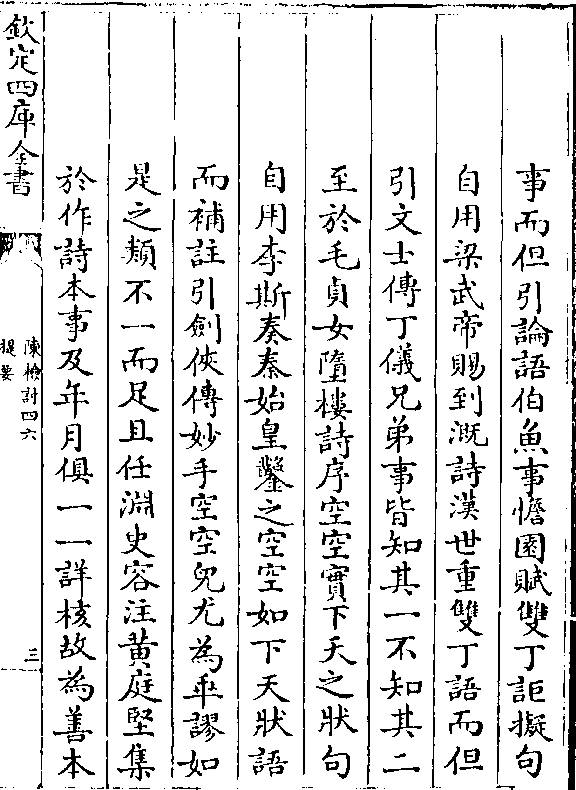 事而但引論語伯魚事憺園賦雙丁詎擬句
自用梁武帝賜到溉詩漢世重雙丁語而但
引文士傳丁儀兄弟事皆知其一不知其二
至於毛貞女墮樓詩序空空實下天之狀句
自用李斯奏秦始皇鑿之空空如下天狀語
而補註引劍俠傳妙手空空兒尤為乖謬如
是之類不一而足且任淵史容注黃庭堅集
於作詩本事及年月俱一一詳核故為善本
欽定四庫全書
陳檢討四六
提要
三